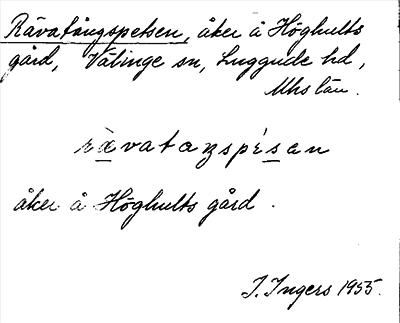 Rävatångspetsen, åker å Höghults
gård, Välinge sn, Luggude hd,
Mhs län.
rävataŋspésan
åker å Höghults gård.
I. Ingers 1955.